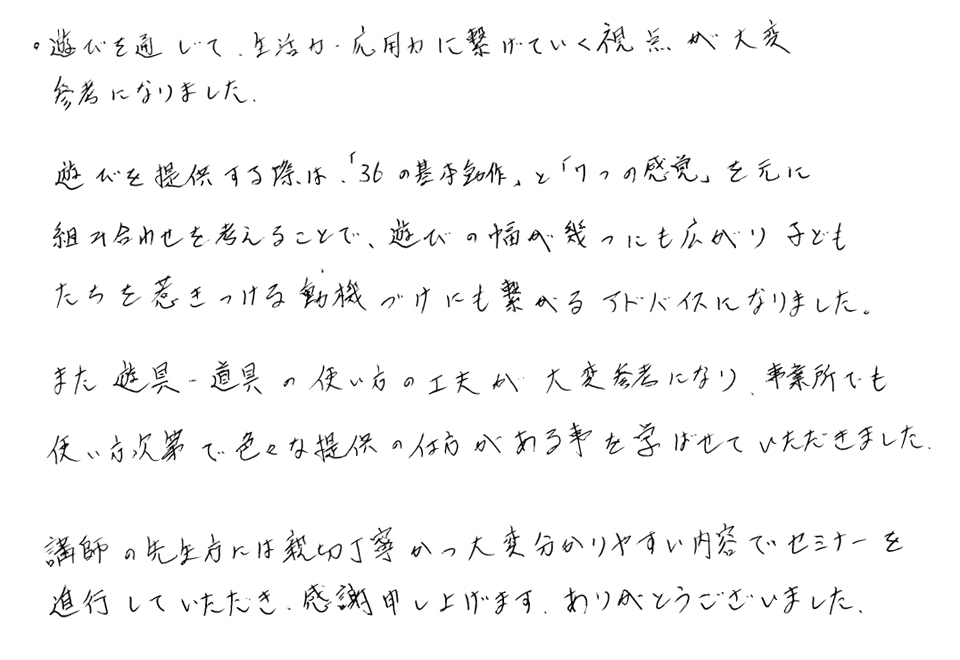 。遊びを通じて、生活力・応用力に繋げていく視点が大変
参考になりました。
遊びを提供する際は、「36の基本動作」と「7つの感覚」を元に
組み合わせを考えることで、遊びの幅が幾つにも広がり子ども
たちを惹きつける動機づけにも繋がるアドバイスになりました。
また遊具・道具の使い方の工夫が大変参考になり、事業所でも
使い方次第で色々な提供の仕方がある事を学ばせていただきました。
講師の先生方には親切丁寧かつ大変分かりやすい内容でセミナーを
進行していただき、感謝申し上げます。ありがとうございました。